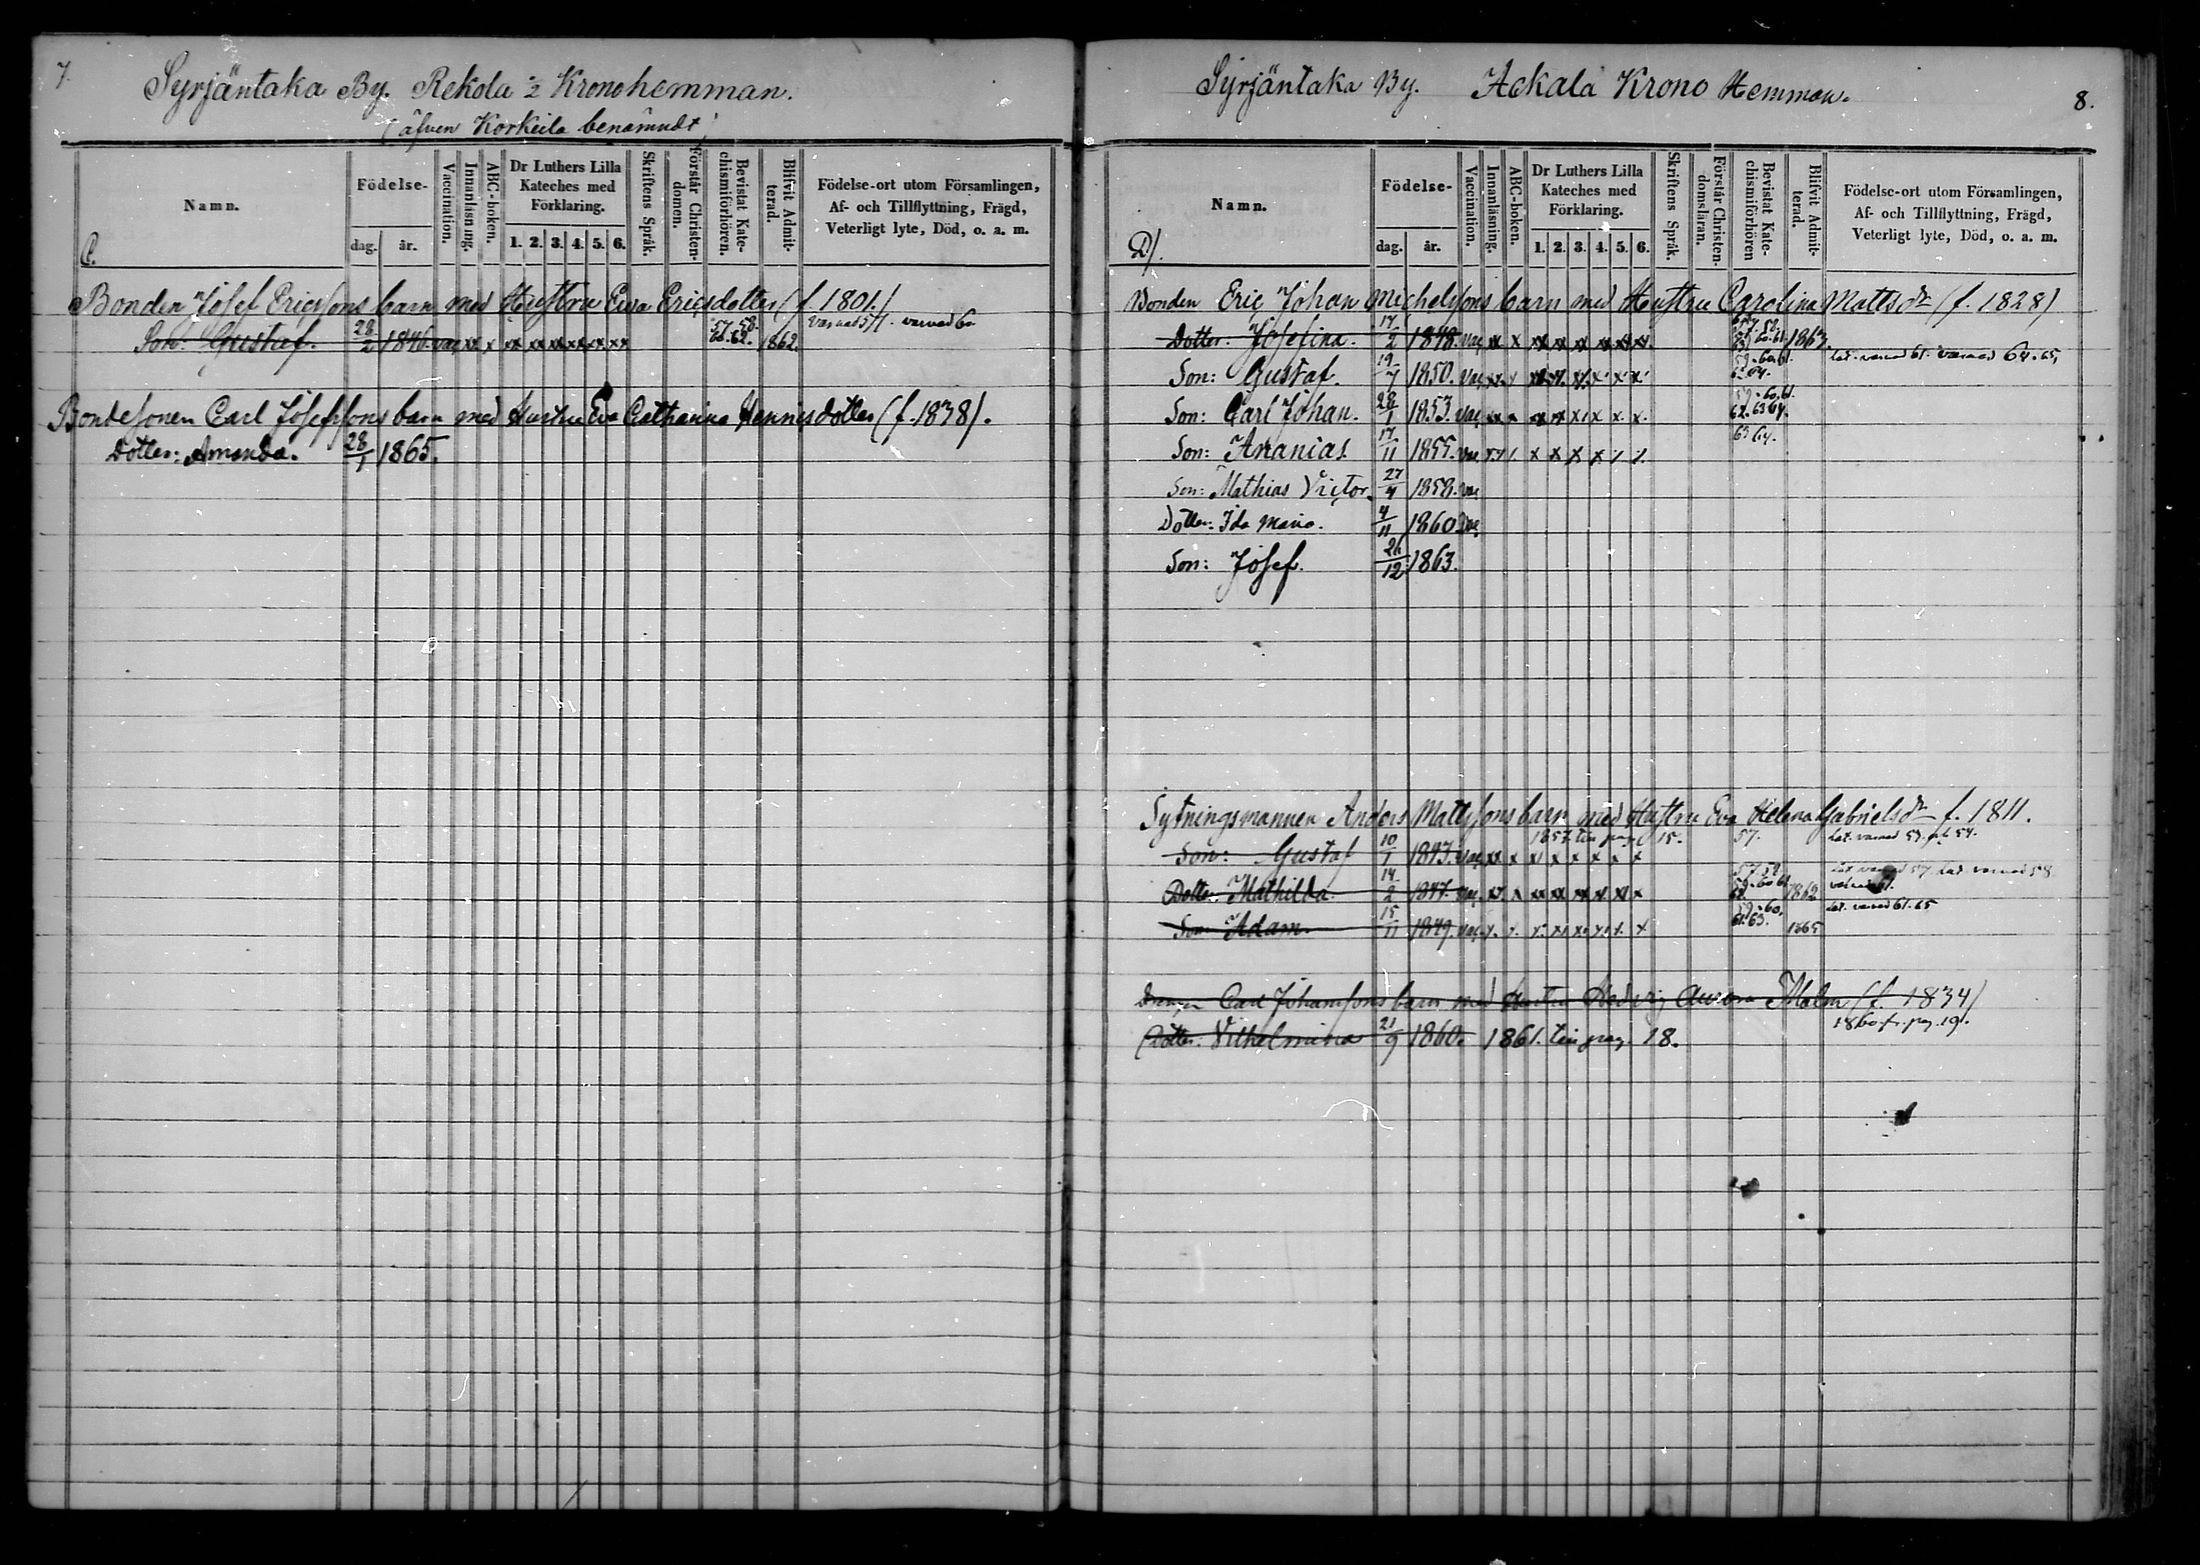 7.
Syrjäntaka By. Rekola ½ Kronohemman.
(äfven Korkeila benämndt)
Namn.
Födelse-
dag. år.
Vaccination.
Innanläsning.
ABC-boken.
Dr Luthers Lilla Kateches med Förklaring.
1. 2. 3. 4. 5. 6.
Skriftens Språk.
Förstår Christendomen.
Bevistat Katechismiförhören.
Blifvit Admitterad.
Födelse-ort utom Församlingen,
Af- och Tillflyttning, Frägd,
Veterligt lyte, Död, o. a. m.
C.
Bonden Josef Ericssons barn med Hustru Eva Ericsdotter (f. 1801.)
Son: Gustaf. 28/2 1846. vac. xx x xx xx xx xx x xx 57. 58. 60. 62. 1862.
Bondesonen Carl Josefssons barn med Hustru Eva Catharina Hennisdotter (f. 1838).
Dotter: Amanda. 28/1 1865.
Syrjäntaka By. Ackala Krono Hemman.
8.
Namn.
Födelse-
dag. år.
Vaccination.
Innanläsning.
ABC-boken.
Dr Luthers Lilla Kateches med Förklaring.
1. 2. 3. 4. 5. 6.
Skriftens Språk.
Förstår Christendomslaran.
Bevistat Katechismiförhören
Blifvit Admitterad.
Födelse-ort utom Församlingen,
Af- och Tillflyttning, Frägd,
Veterligt lyte, Död, o. a. m.
D).
Bonden Eric Johan Michelssons barn med Hustru Carolina Mattsdr (f. 1828)
Dotter: Josefina. 17/2 1848. vac. xx x xx xx xx xx xx xx 1863.
Son: Gustaf. 19/7 1850. vac. 59. 60. 61.
Son: Carl Johan. 28/1 1853. vac. xx x xx xx x x x x. 59. 60. 61. 62. 63. 64.
Son: Ananias 17/11 1855. vac. x x x x 63 64.
Son: Mathias Victor. 27/4 1858. vac
Dotter: Ida Maria. 4/11 1860 vac.
Son: Josef. 26/12 1863.
Sytningsmannen Anders Mattssons barn med Hustru Eva Helena Gabrielsdr f. 1811.
Son: Gustaf 10/1 1843. vac. xx x x x x x x x 1857. till pag. 15. 57.
Dotter: Mathilda 14/2 1847. vac. 57. 58. 59. 60 61 62. 1862
Son: Adam. 15/11 1849. vac. 59. 60. 61. 63. 1865
Drängen Carl Johanssons barn med Hustru Hedvig Aurora Malm (f. 1834)
1860 fr. pag. 19.
Dotter: Vilhelmina 21/9 1860. 1861. till pag. 18.